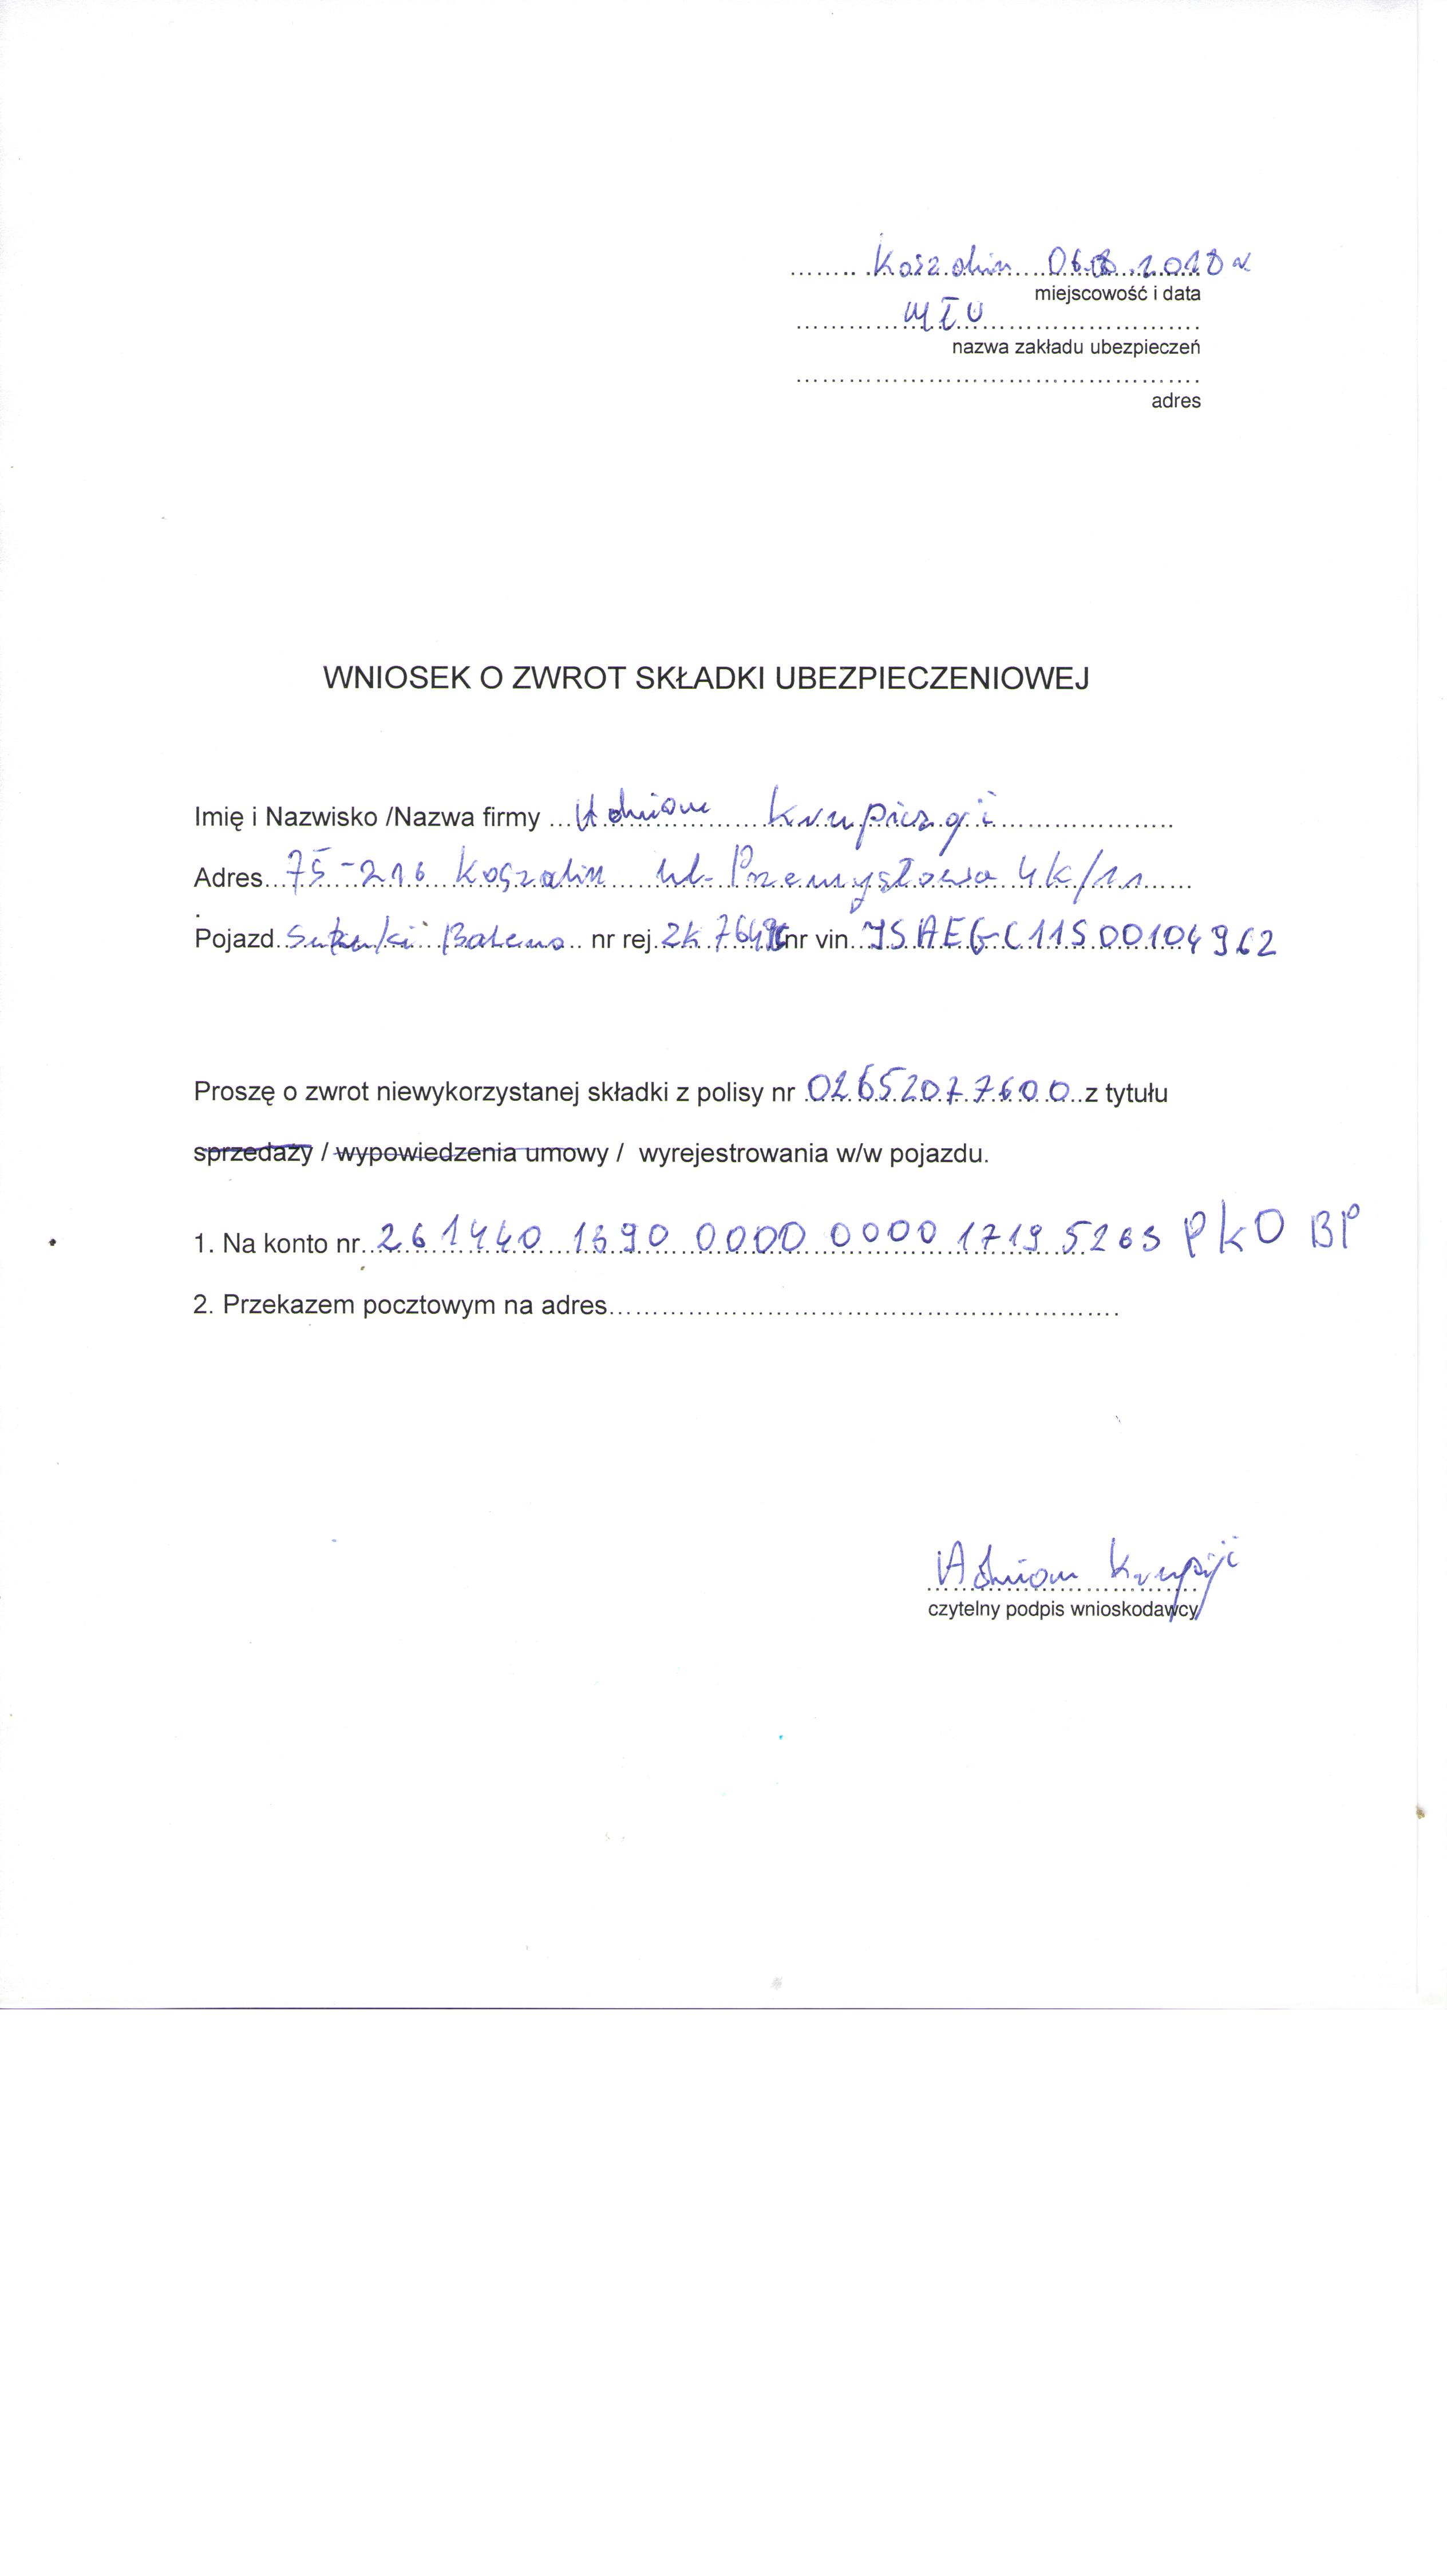 Koszalin 06.8.2018 r
miejscowość i data
MTU
nazwa zakładu ubezpieczeń
adres
WNIOSEK O ZWROT SKŁADKI UBEZPIECZENIOWEJ
Imię i Nazwisko /Nazwa firmy ... Adrian
Adres...75-216 Koszalin ul. Przemysłowa 4k/11
Pojazd Suzuki Baleno nr rej. ZK nr vin JSAEGC11S00104962
Proszę o zwrot niewykorzystanej składki z polisy nr 02652077600 z tytułu
sprzedaży / wypowiedzenia umowy / wyrejestrowania w/w pojazdu.
1. Na konto nr. 26 1440 1390 0000 0000 1719 5263 PKO BP
2. Przekazem pocztowym na adres
Adrian
czytelny podpis wnioskodawcy